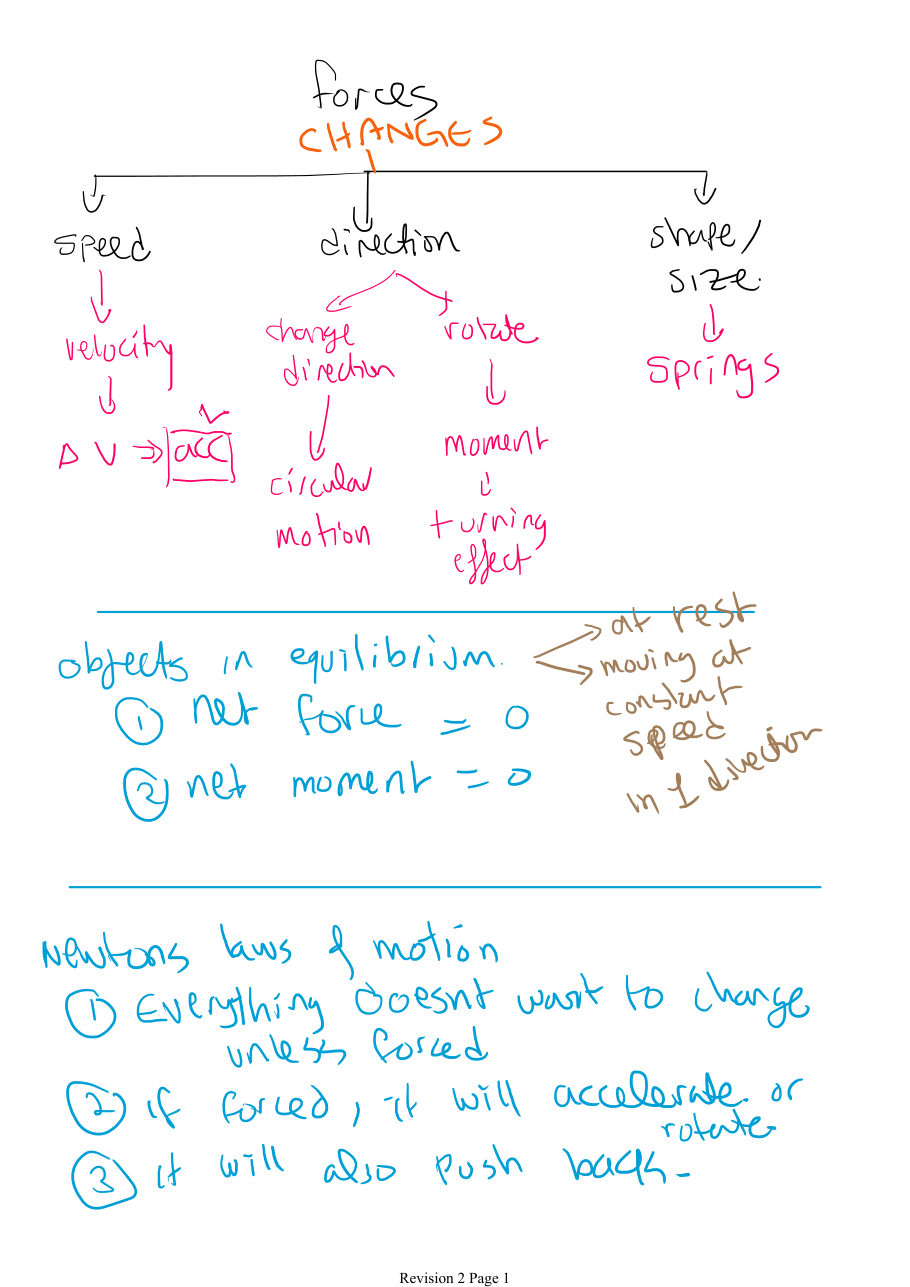 forces
CHANGES
speed
direction
shape/
size.
velocity
change
direction
rotate
springs
Δ V ⇒ acc
circular
motion
moment
turning
effect
objects in equilibrium.
at rest
moving at
constant
speed
in 1 direction
① net force = 0
② net moment = 0
Newtons laws of motion
① Everything doesnt want to change
unless forced
② if forced, it will accelerate. or
rotate
③ it will also push back.
Revision 2 Page 1